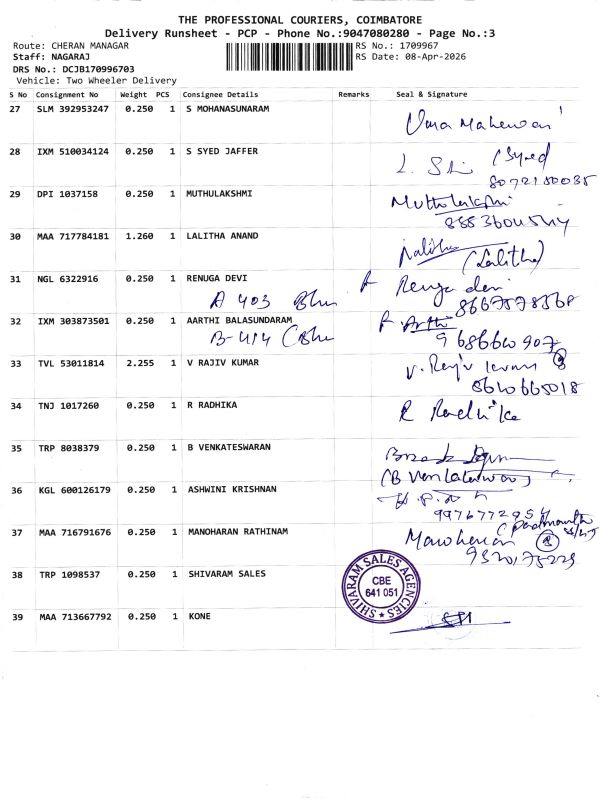 THE PROFESSIONAL COURIERS, COIMBATORE
Delivery Runsheet - PCP - Phone No.:9047080280 - Page No.:3
Route: CHERAN MANAGAR
RS No.: 1709967
Staff: NAGARAJ
RS Date: 08-Apr-2026
DRS No.: DCJB170996703
Vehicle: Two Wheeler Delivery
S No Consignment No Weight PCS Consignee Details Remarks Seal & Signature
27 SLM 392953247 0.250 1 S MOHANASUNARAM
Uma Maheswari
28 IXM 510034124 0.250 1 S SYED JAFFER
(Syed
8072180035
29 DPI 1037158 0.250 1 MUTHULAKSHMI
Muthulakshmi
30 MAA 717784181 1.260 1 LALITHA ANAND
Lalitha
(Lalitha)
31 NGL 6322916 0.250 1 RENUGA DEVI
Renuga devi
A 403
8667578568
32 IXM 303873501 0.250 1 AARTHI BALASUNDARAM
Arthi
B-414
9686660907
33 TVL 53011814 2.255 1 V RAJIV KUMAR
V. Rajiv kumar
8610665018
34 TNJ 1017260 0.250 1 R RADHIKA
R Radhika
35 TRP 8038379 0.250 1 B VENKATESWARAN
(B Venkateswaran)
36 KGL 600126179 0.250 1 ASHWINI KRISHNAN
9976772954
37 MAA 716791676 0.250 1 MANOHARAN RATHINAM
Manoharan
38 TRP 1098537 0.250 1 SHIVARAM SALES
SHIVARAM SALES AGENCIES
CBE
641 051
39 MAA 713667792 0.250 1 KONE